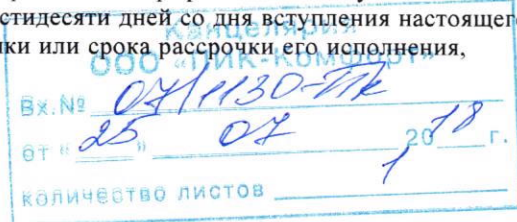 стидесяти дней со дня вступления настоящего
ки или срока рассрочки его исполнения,
Канцелярия
ООО «ПИК-Комфорт»
Вх.№ 07/1130-Пк
от "25" 07 2018 г.
количество листов 1